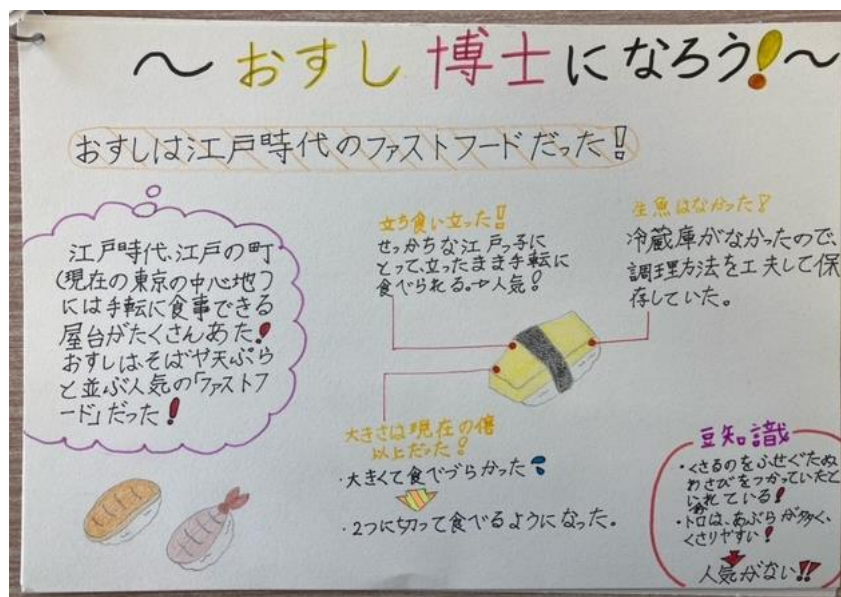 ～おすし博士になろう！～
おすしは江戸時代のファストフードだった！
江戸時代、江戸の町
(現在の東京の中心地)
には手転に食事できる
屋台がたくさんあた！
おすしは、そばや天ぷら
と並ぶ人気の「ファストフ
ード」だった！
立ち食い立った！！
せっかちな江戸っ子に
とって、立ったまま手転に
食べられる。→人気！
生魚はなかった！
冷蔵庫がなかったので、
調理方法を工夫して保
存していた。
大きさは現在の倍
以上だった！
・大きくて食べづらかった
・2つに切って食べるようになった。
豆知識
・くさるのをふせぐため
わさびをつかっていたと
いれている！
・トロは、あぶらが多く、
くさりやすい！
人気がない！！